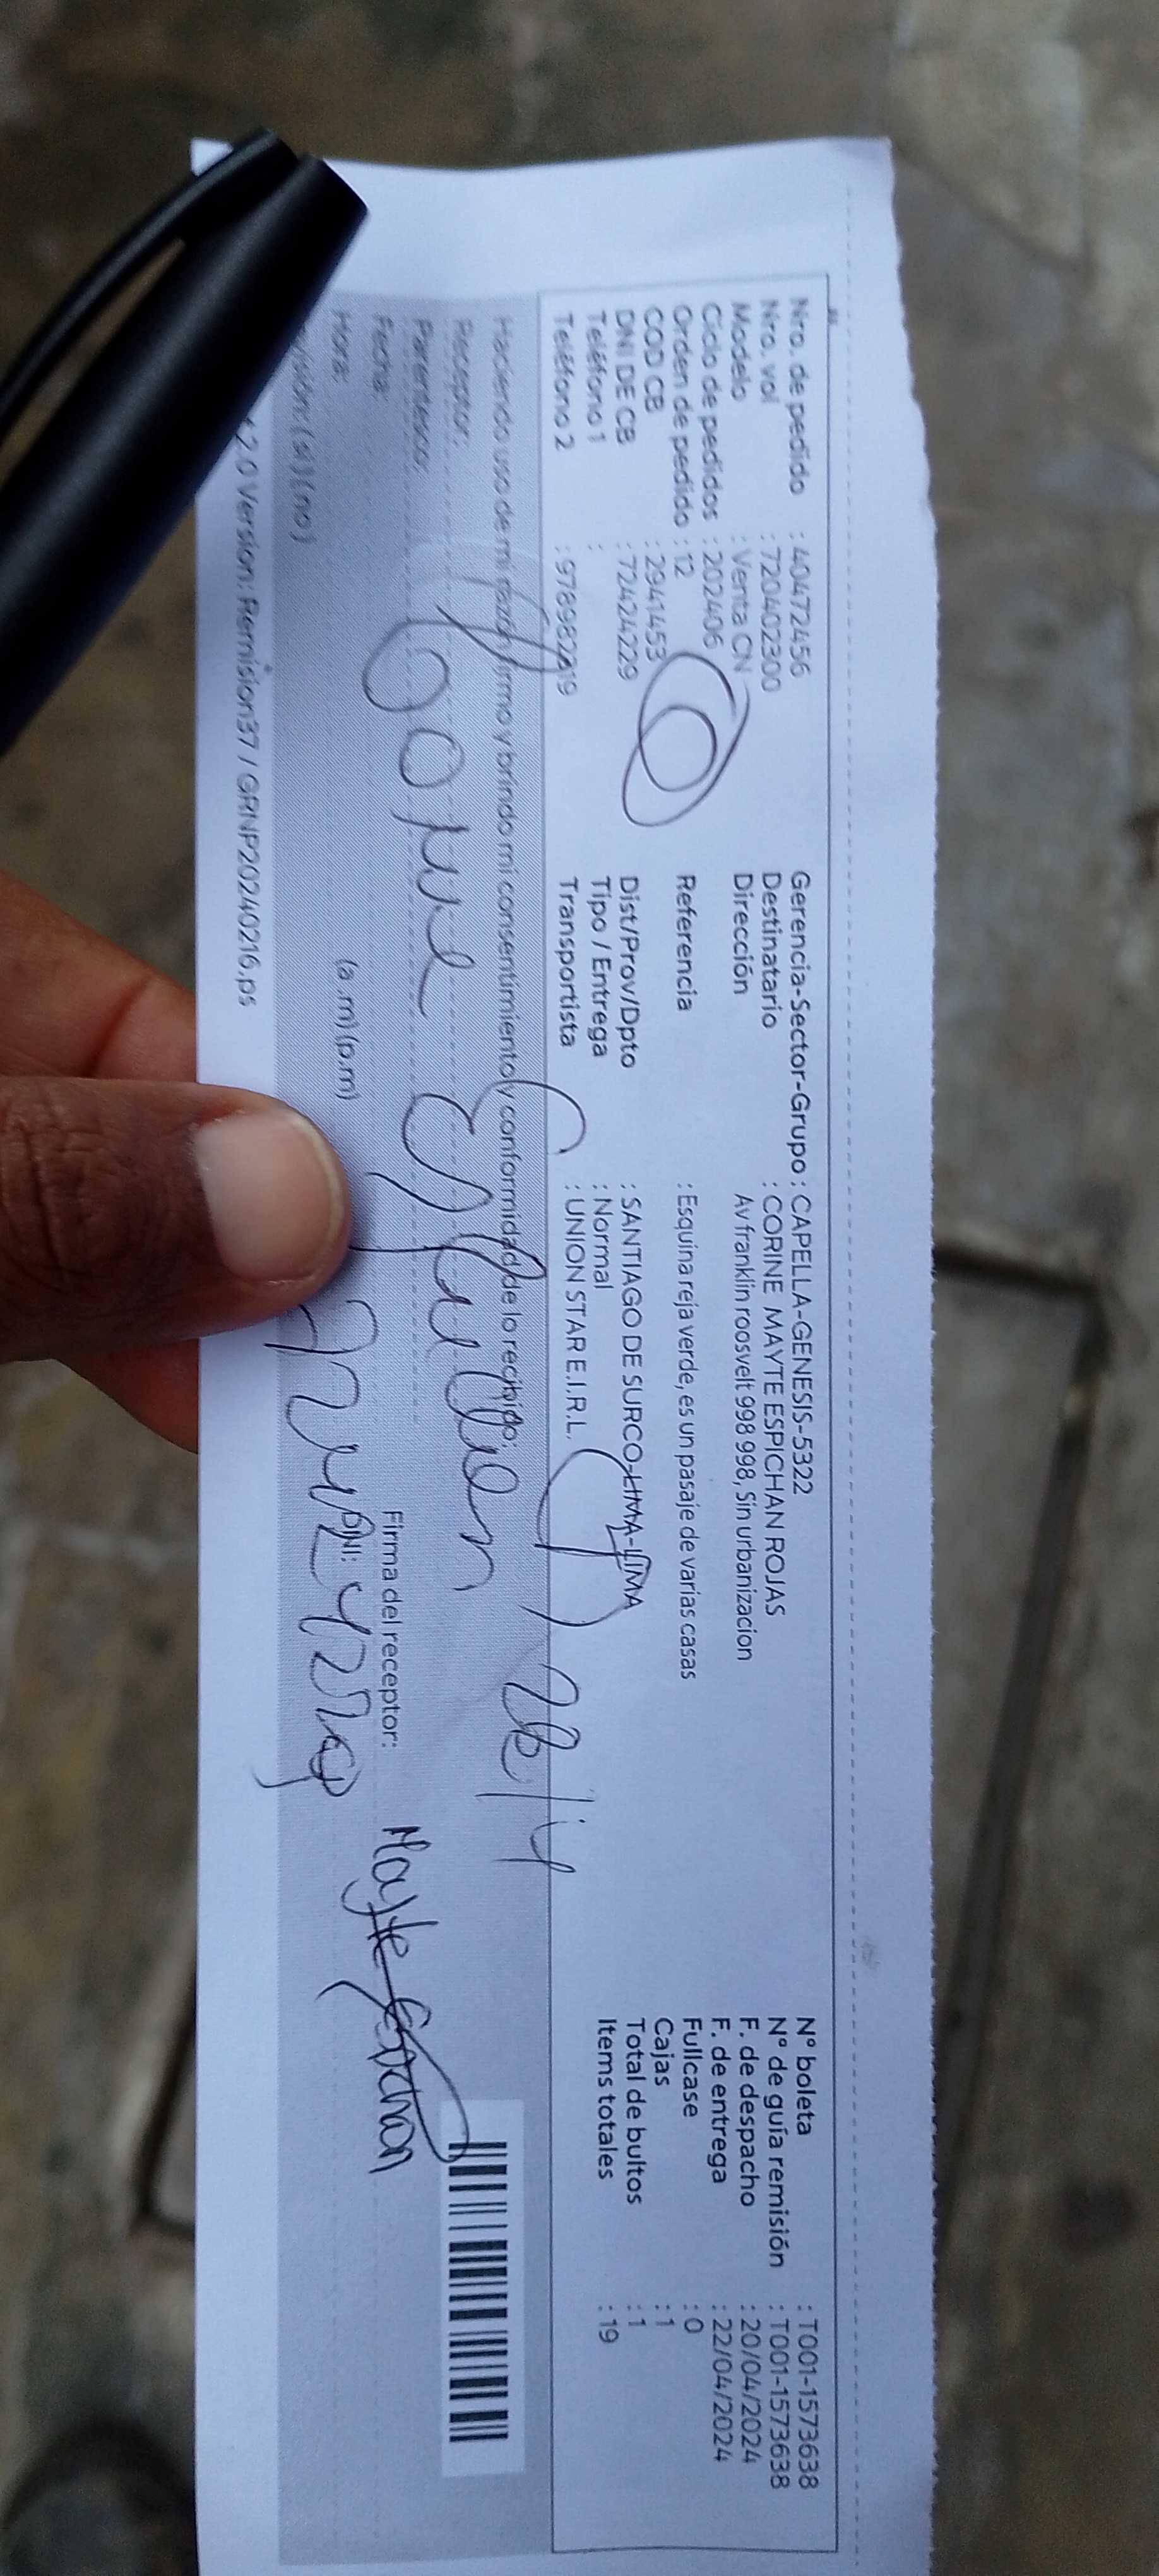 Nro. de pedido : 40472456
Nro. vol : 720402300
Modelo : Venta CN
Ciclo de pedidos : 202406
Orden de pedido : 12
COD CB : 2941453
DNI DE CB : 72424229
Teléfono 1 :
Teléfono 2 : 978982819
Gerencia-Sector-Grupo : CAPELLA-GENESIS-5322
Destinatario : CORINE MAYTE ESPICHAN ROJAS
Dirección Av franklin roosvelt 998 998, Sin urbanizacion
Referencia : Esquina reja verde, es un pasaje de varias casas
Dist/Prov/Dpto : SANTIAGO DE SURCO-LIMA-LIMA
Tipo / Entrega : Normal
Transportista : UNION STAR E.I.R.L.
N° boleta : T001-1573638
N° de guía remisión : T001-1573638
F. de despacho : 20/04/2024
F. de entrega : 22/04/2024
Fullcase : 0
Cajas : 1
Total de bultos : 1
Items totales : 19
Haciendo uso de mi razón firmo y brindo mi consentimiento y conformidad de lo recibido:
Receptor:
Parentesco:
Fecha:
Hora: (a.m)(p.m)
(si) (no)
Firma del receptor:
Mayte Espichan
DNI:
2.0 Version: Remision37 / GRNP20240216.ps